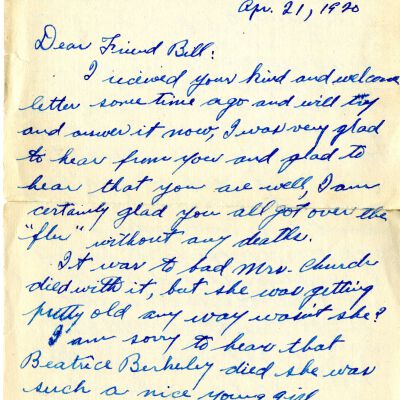 Apr. 21, 1920
Dear Friend Bill:
I recieved your kind and welcome
letter some time ago and will try
and answer it now, I was very glad
to hear from you and glad to
hear that you are well, I am
certainly glad you all got over the
"flu" without any deaths.
It was to bad Mrs. Church
died with it, but she was getting
pretty old any way wasn't she?
I am sorry to hear that
Beatrice Berkeley died she was
such a nice young girl